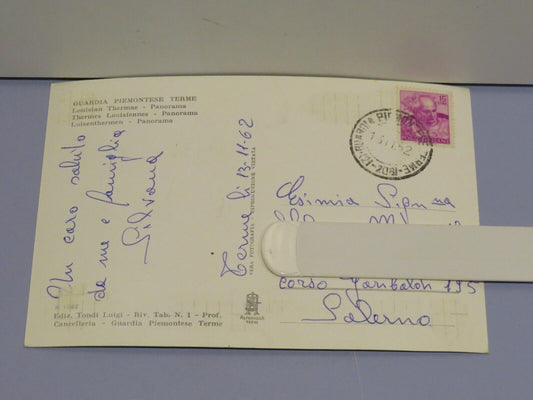 GUARDIA PIEMONTESE TERME
Louisian Thermae - Panorama
Thermes Louisiennes - Panorama
Luisenthermen - Panorama
Un caro saluto
da me e famiglia
Silvana
Terme li 13-11-62
VERA FOTOGRAFIA - RIPRODUZIONE VIETATA
Ediz. Tondi Luigi - Riv. Tab. N. 1 - Prof.
Cancelleria - Guardia Piemontese Terme
15
GUARDIA PIEMONTESE TERME
Esimia Sig.na
corso Garibaldi 195
Salerno